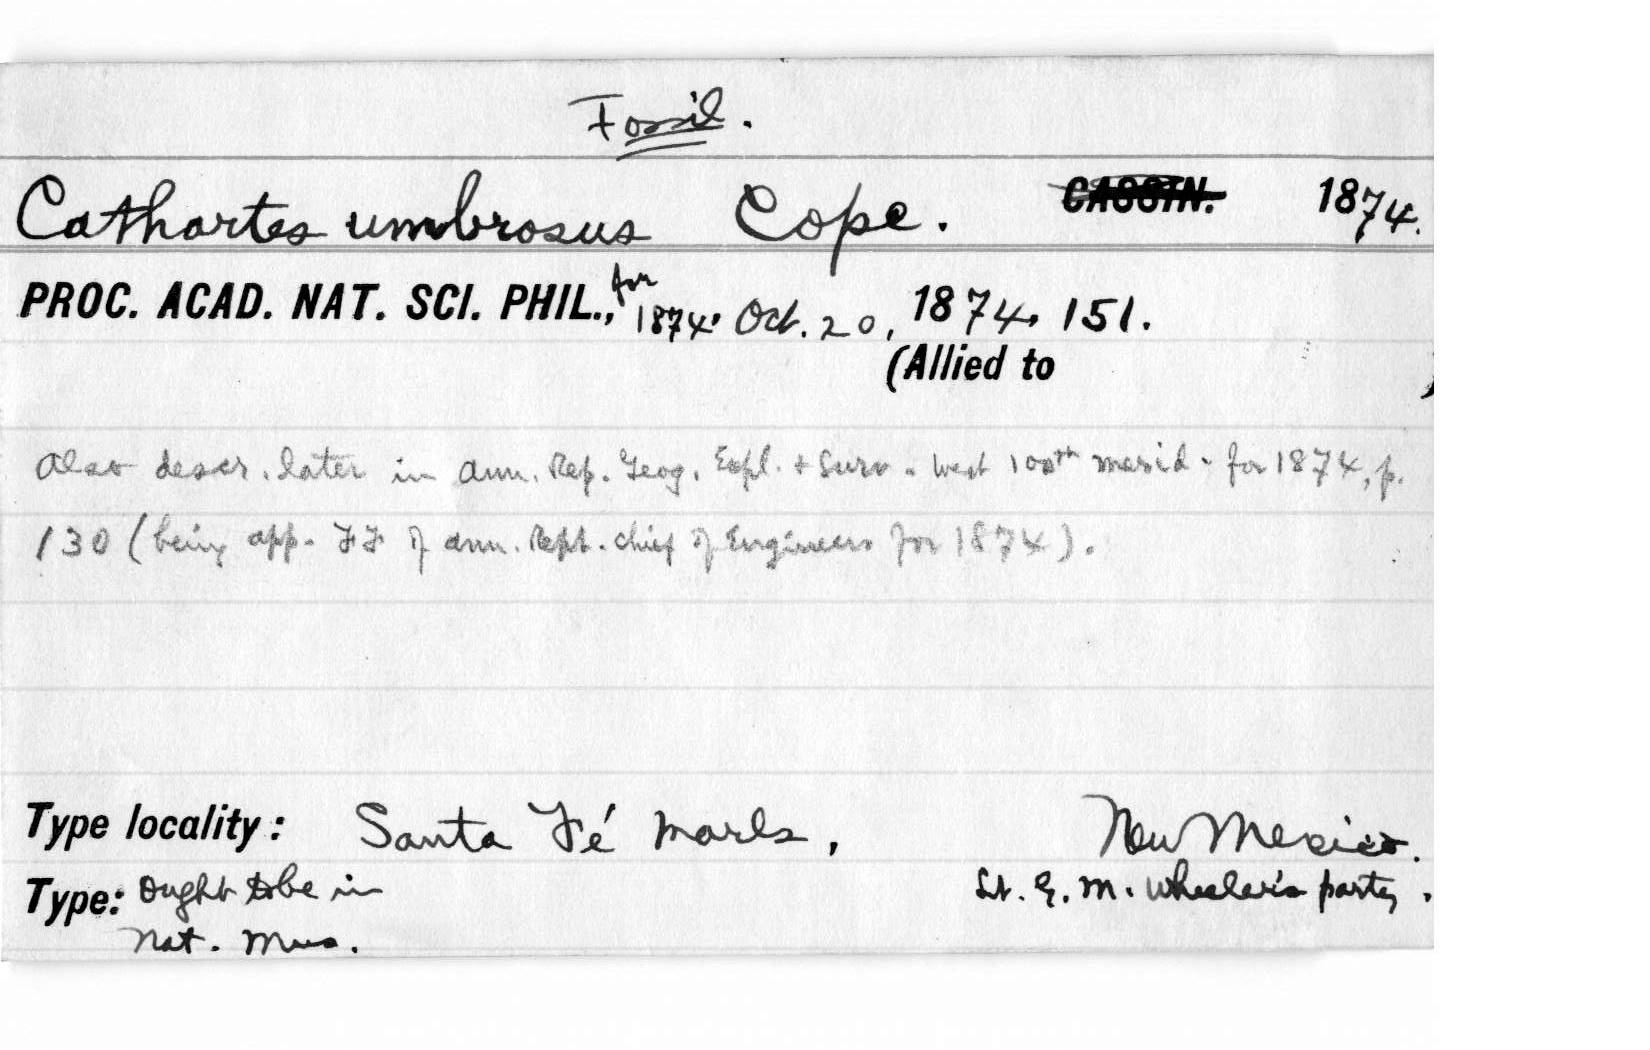 Fossil.
Cathartes umbrosus Cope. CASSIN. 1874.
PROC. ACAD. NAT. SCI. PHIL., for 1874. Oct. 20, 1874, 151.
(Allied to )
Also descr. later in Ann. Rep. Geog. Expl. + Surv. West 100th merid. for 1874, p.
130 (being app. FF of Ann. Rept. Chief of Engineers for 1874).
Type locality: Santa Fé marls, New Mexico.
Type: Ought to be in Lt. G. M. Wheeler's party.
Nat. Mus.